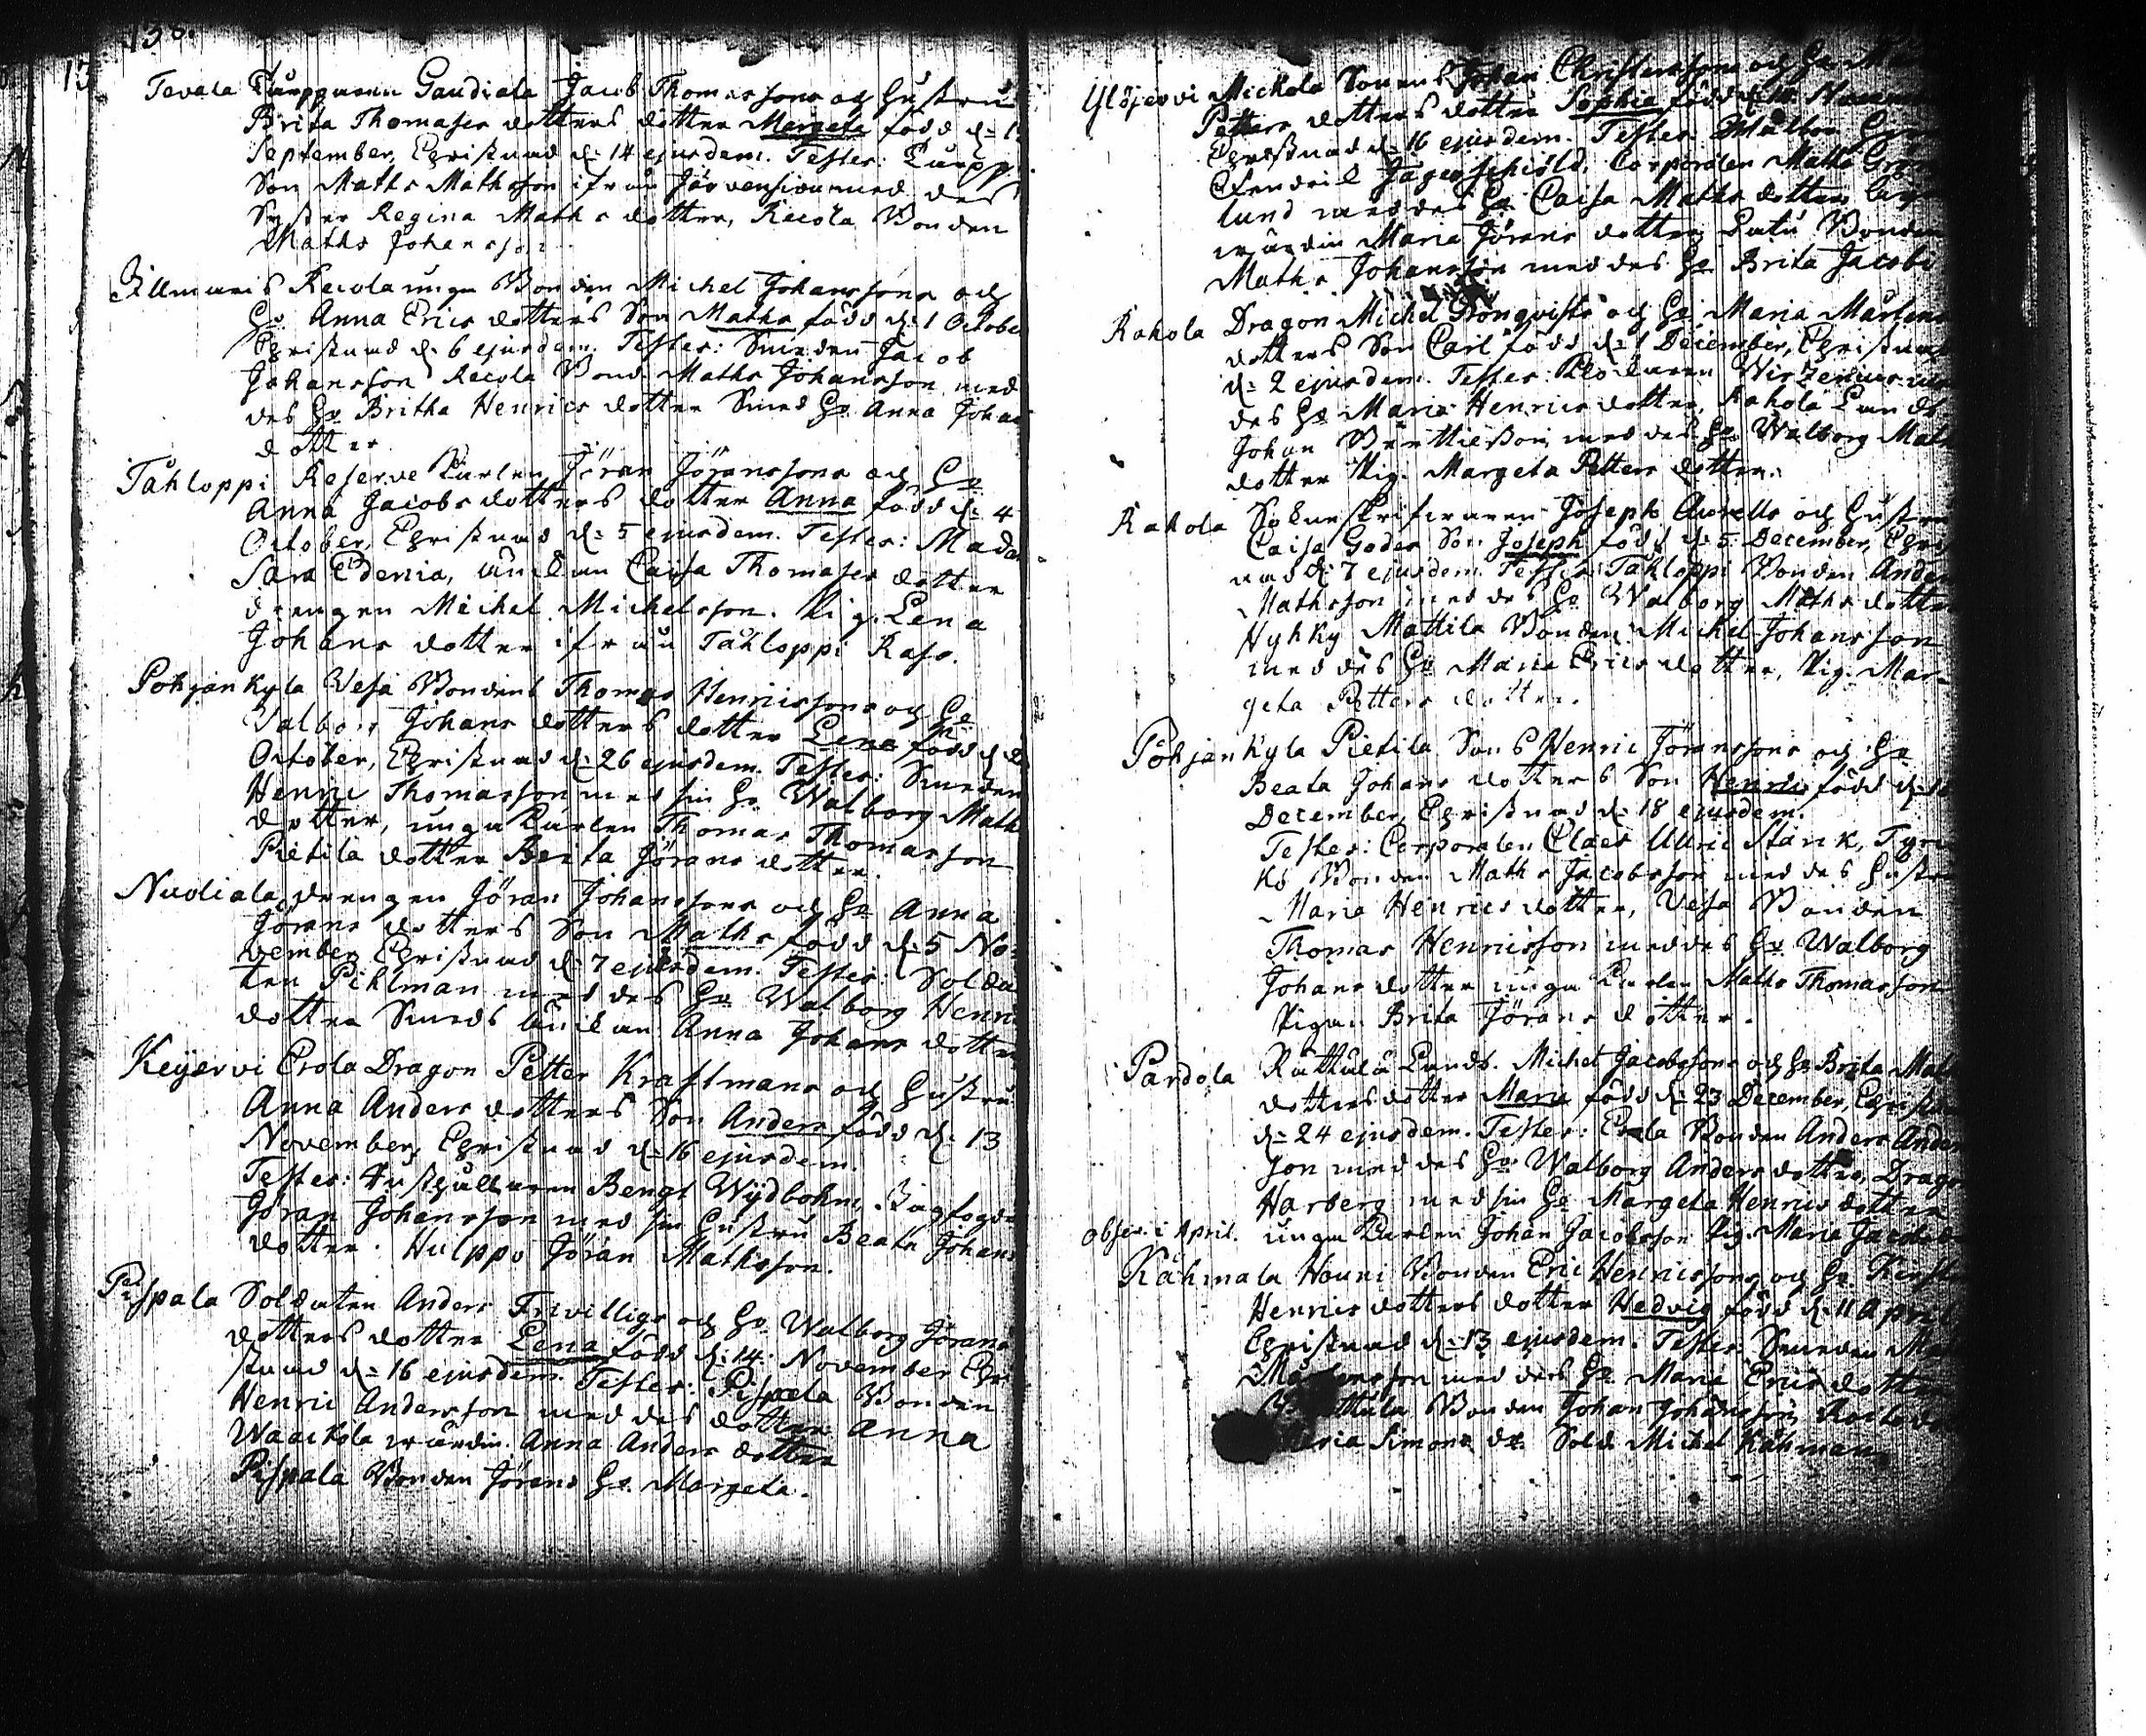 138.
Tevala Gaudiala Jacob Thomassons och Hustru
Brita Thomases dotters dotter Margeta född d:
September, Christnad d: 14 ejusdem. Testes:
Son Maths Mathsson ifrån med des
Syster Regina Maths dotter, Recola Bonden
Maths Johansson
Recola unga Bonden Michel Johanssons och
Hu Anna Erics dotters Son Maths född d: 1 Octobe
Christnad d: 6 ejusdem. Testes: Smeden Jacob
Johansson Recola Bond. Maths Johansson med
des Hu Britha Henrics dotter Smed Hu Anna Johan
dotter
Tahloppi Reserve Karlen Jöran Jöranssons och Hu
Anna Jacobs dotters dotter Anna född d: 4
October, Christnad d: 5 ejusdem. Testes: Madam
Sara Edenia, änckan Caisa Thomases dotter
drengen Michel Michelsson. Pig. Lena
Johans dotter ifrån Tahloppi Raso.
Pohjankyla Vesa Bondens Thomas Henricssons och Hu
Valborg Johans dotters dotter Lena född d:
October, Christnad d: 26 ejusdem. Testes: Smeden
Henric Thomasson med sin Hu Walborg Maths
dotter, unga Karlen Thomas Thomasson
Pietila dotter Brita Jörans dotter.
Nudiala drengen Jöran Johanssons och Hu Anna
Jörans dotters Son Maths född d: 5 No-
vember Christnad d: 7 ejusdem. Testes: Solda
ten Pihlman med des Hu Walborg Henri
dotter Smeds änckan Anna Johans dotter
Keijervi Erola Dragon Petter Kraftmans och Hustru
Anna Anders dotters Son Anders född d: 13
November, Christnad d: 16 ejusdem.
Testes: Bengt Wydbohm,
Jöran Johansson med sin Hustru Beata Johans
dotter. Hulppo Jöran Mathsson.
Pispala Soldaten Anders Frivilligs och Hu Walborg Jörans
dotters dotter Lena född d: 14 November Chri
stnad d: 16 ejusdem Testes: Pispala Bonden
Henric Andersson med des dotter Anna
Waackola Anna Anders dotter
Pispala Bonden Jörens Hu Margeta.
Ylöjervi Mickola Sonens Johan Christerssons och Hu
Petters dotters dotter Sophia född d:
Christnad d: 16 ejusdem. Testes:
Jägerschiöld, Corporalen Maths Grön
lund med des Hu Caisa Maths dotter
Maria Jörans dotter Bonden
Maths Johansson med des Hu Brita Jacobs
Kahola Dragon Michel Rönqvists och Hu Maria Mårtens
dotters Son Carl född d: 1 December, Christnad
d: 2 ejusdem. Testes: Klockaren Wirzenius med
des Hu Maria Henrics dotter, Kahola Landb
Johan med des Hu Walborg Maths
dotter Pig. Margeta Petters dotter.
Kahola Joseph Aurells och Hustru
Caisa Goders Son Joseph född d: 5 December, Christ
nad d: 7 ejusdem Testes: Tahloppi Bonden Anders
Mathsson med des Hu Walborg Maths dotter
Nyhky Mattila Bonden Michel Johansson
med des Hu Maria Erics dotter, Pig. Mar-
geta Petters dotter.
Pohjankyla Pietila Sons Henric Jöranssons och Hu
Beata Johans dotters Son Henric född d: 16
December, Christnad d: 18 ejusdem.
Testes: Corporalen Claes Ulric Starck,
Bonden Maths Jacobsson med des Hustru
Maria Henrics dotter, Vesa Bonden
Thomas Henricsson med des Hu Walborg
Johans dotter unga Karlen Maths Thomasson
Pigan Brita Jörans dotter.
Pardola Landb. Michel Jacobssons och Hu Brita Maths
dotters dotter Maria född d: 23 December, Christnad
d: 24 ejusdem. Testes: Erola Bonden Anders Anders
son med des Hu Walborg Anders dotter, Dragon
Harberg med sin Hu Margeta Henrics dotter
obser: i April. unga Karlen Johan Jacobsson Pig. Maria Jacobs
Kahmala Houni Bonden Eric Henricssons och Hu Kirst
Henrics dotters dotter Hedvig född d: 11 April
Christnad d: 13 ejusdem. Testes: Smeden
Mårtensson med des Hu Maria Erics dotter
Bonden Johan Johansson
Maria Simons dr Sold. Michel Kahman